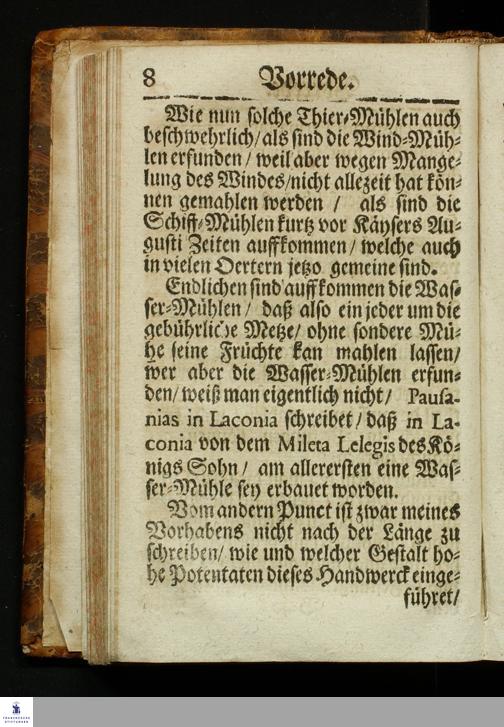 8
Vorrede.
Wie nun solche Thier-Mühlen auch
beschwehrlich/als sind die Wind-Müh-
len erfunden / weil aber wegen Mange-
lung des Windes/nicht allezeit hat kön-
nen gemahlen werden / als sind die
Schiff-Mühlen kurtz vor Käysers Au-
gusti Zeiten auffkommen/ welche auch
in vielen Oertern jetzo gemeine sind.
Endlichen sind auffkommen die Was-
ser-Mühlen / daß also ein jeder um die
gebührliche Metze/ ohne sondere Mü-
he seine Früchte kan mahlen lassen/
wer aber die Wasser-Mühlen erfun-
den/ weiß man eigentlich nicht/ Pausa-
nias in Laconia schreibet/ daß in La-
conia von dem Mileta Lelegis des Kö-
nigs Sohn/ am allerersten eine Was-
ser-Mühle sey erbauet worden.
Vom andern Punct ist zwar meines
Vorhabens nicht nach der Länge zu
schreiben/ wie und welcher Gestalt ho-
he Potentaten dieses Handwerck einge-
führet/
FRANCKESCHE
STIFTUNGEN